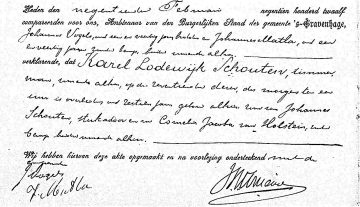 Heden den negentienden Februari negentien honderd twaalf
compareerden voor ons, Ambtenaar van den Burgerlijken Stand der gemeente 's-Gravenhage,
Johannes Vogels, oud een en veertig jaar, en Johannes Matla, oud een
en veertig jaar, zonder beroep, beiden wonende alhier,
verklarende, dat Karel Lodewijk Schouten, timmer
man, wonende alhier, op den des morgens te een
ure is overleden, oud jaren, geboren alhier, zoon van Johannes
Schouten, stukadoor en van Cornelia Jacoba van Holstein, zonder
beroep, beiden wonende alhier.
Wij hebben hiervan deze akte opgemaakt en na voorlezing onderteekend met de
Vogels
J. Matla